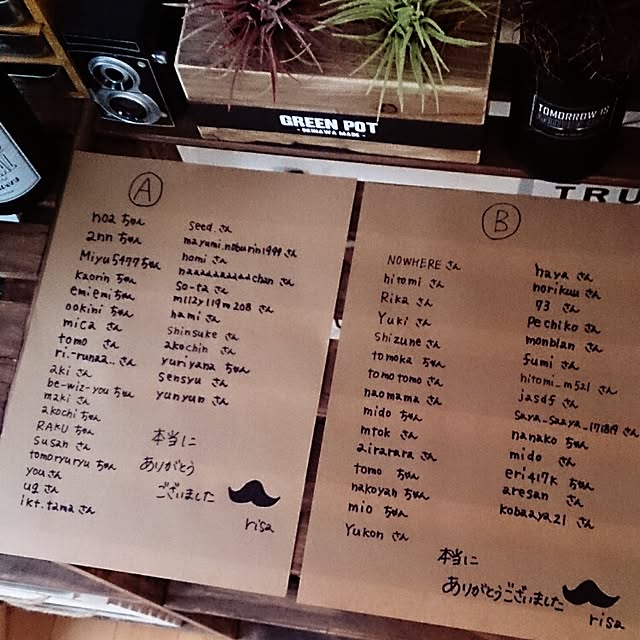 GREEN POT
- OKINAWA MADE -
TOMORROW IS
TRU
A
noa ちゃん
2nn ちゃん
Miyu5477ちゃん
kaorin ちゃん
emiemiちゃん
ookini ちゃん
mica さん
tomo さん
ri.-runa2.. さん
aki さん
be-wiz-you ちゃん
maki さん
akochi ちゃん
RAKU ちゃん
susan さん
tomoryuryu ちゃん
you さん
ug さん
ikt.tama さん
seed さん
mayumi.noburin1999 さん
homi さん
naaaaaaaaachan さん
so-ta さん
m112y119m208 さん
hami さん
shinsuke さん
akochin さん
yuriyana ちゃん
sensyu さん
yunyun さん
本当に
ありがとう
ございました
risa
B
NOWHERE さん
hitomi さん
Rika さん
Yuki さん
Shizune さん
tomoka ちゃん
tomotomo さん
naomama さん
mido ちゃん
mtok さん
airarara さん
tomo ちゃん
nakoyan ちゃん
mio ちゃん
Yukon さん
haya さん
norikuu さん
73 さん
pechiko さん
monblan さん
fumi さん
hitomi_m521 さん
jasdf さん
saya_saaya_171819 さん
nanako ちゃん
mido さん
eri417k ちゃん
aresan さん
kobaaya21 さん
本当に
ありがとうございました
risa